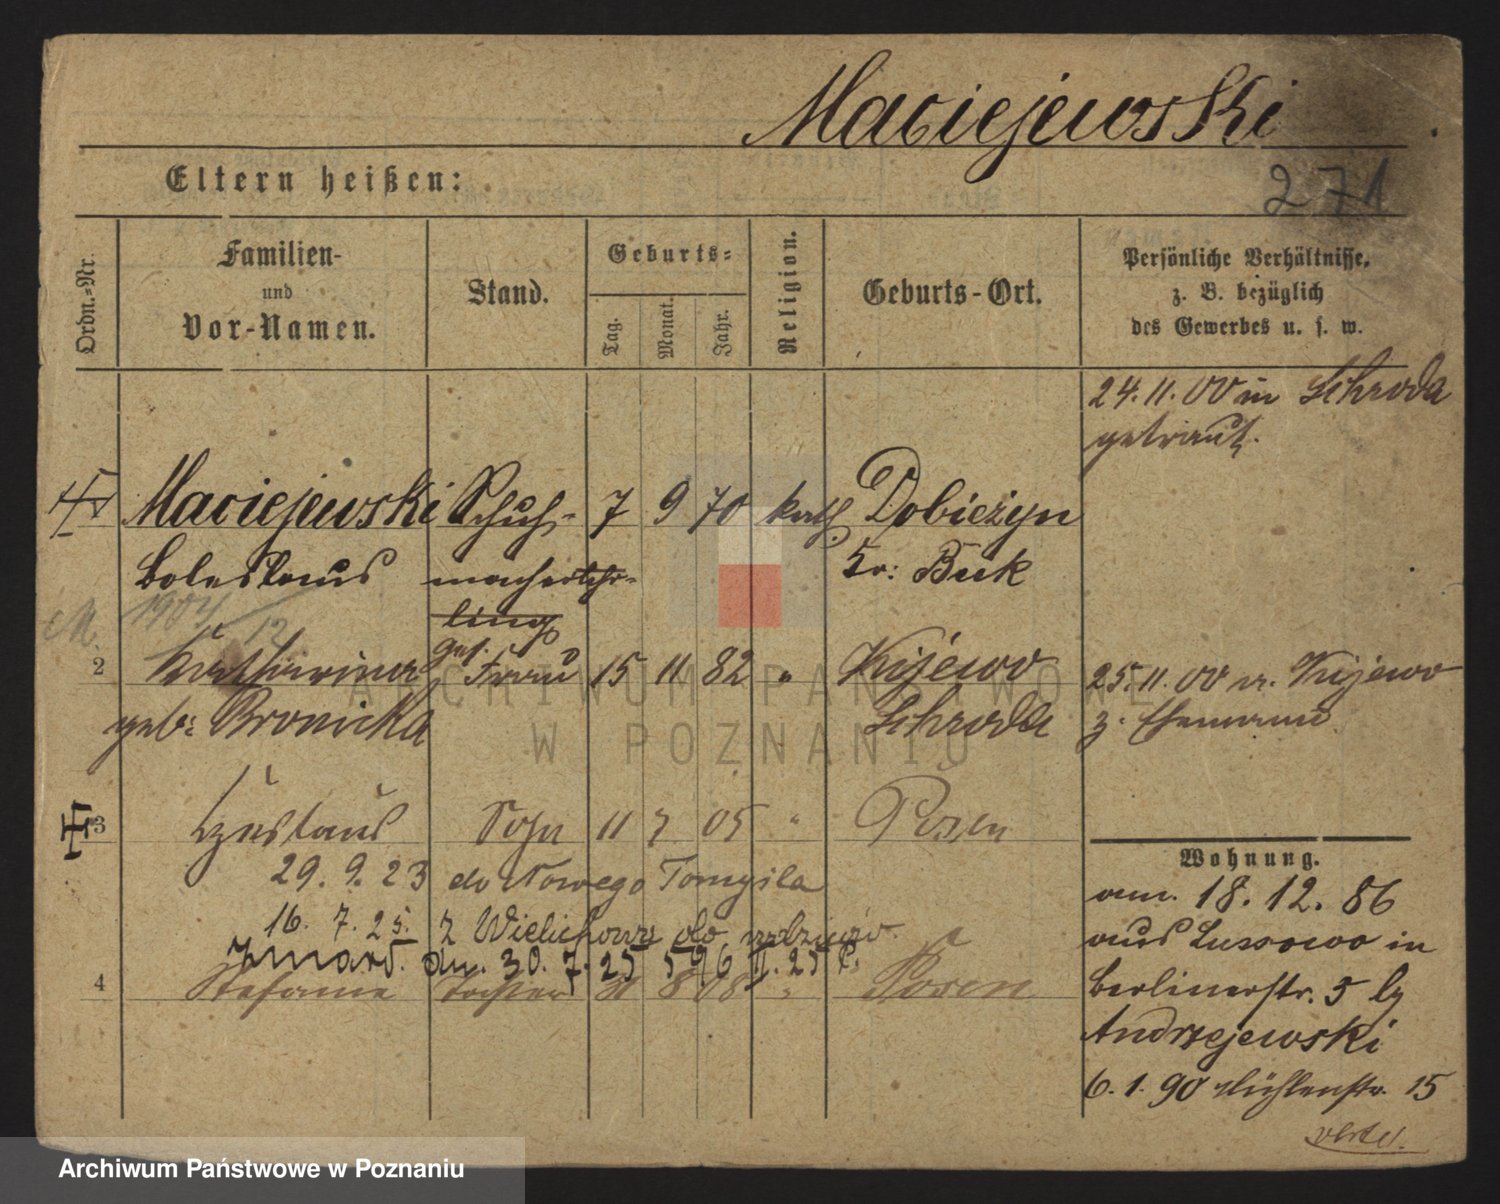 Maciejewski
271
Eltern heißen:
Ordn.-Nr.
Familien- und Vor-Namen.
Stand.
Geburts-
Tag.
Monat.
Jahr.
Religion.
Geburts-Ort.
Persönliche Verhältnisse,
z. B. bezüglich
des Gewerbes u. s. w.
24.11.00 in Schroda
getraut.
Maciejewski Schuh- 7 9 70 kath. Dobieżyn
Boleslaus macherlehr- Kr: Buk
ling
1904
12
ges.
2 Katharina Frau 15 11 82 " Kijewo 25.11.00 v. Kijewo
geb: Bronicka Schroda z. Ehemann
3 Sohn 11 7 05 " Posen
29. 9. 23 do Nowego Tomyśla
16. 7. 25. z Wielichowa do
am. 30. 7. 25 596 II. 25
4 Stefanie Tochter 31 8 08 " Posen
Wohnung.
am. 18. 12. 86
aus Lussowo in
Berlinerstr. 5 by
Andrzejewski
6. 1. 90 Mühlenstr. 15
ARCHIWUM PAŃSTWOWE
W POZNANIU
Archiwum Państwowe w Poznaniu